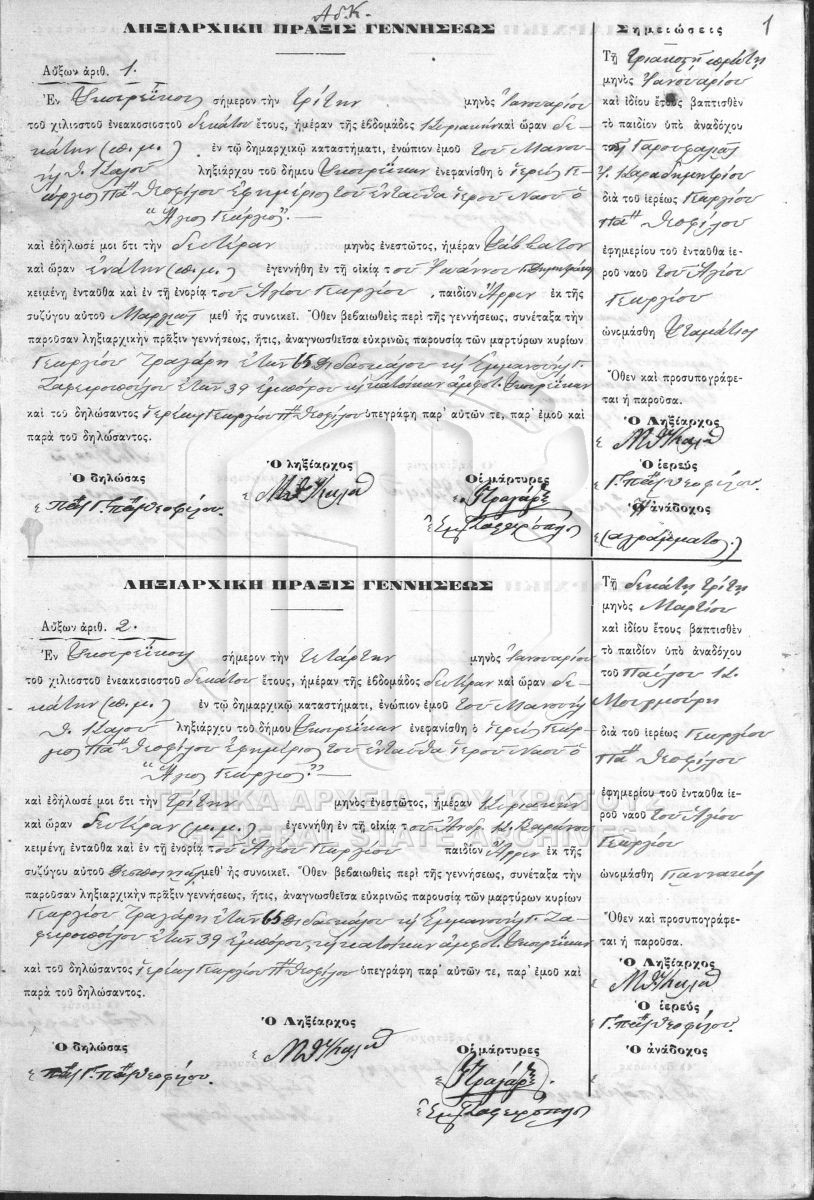 Α δ. Κ.
1
ΛΗΞΙΑΡΧΙΚΗ ΠΡΑΞΙΣ ΓΕΝΝΗΣΕΩΣ
Αὔξων ἀριθ. 1.
Ἐν Σκοπέλῳ σήμερον τὴν τρίτην μηνὸς Ἰανουαρίου
τοῦ χιλιοστοῦ ἐνεακοσιοστοῦ δεκάτου ἔτους, ἡμέραν τῆς ἑβδομάδος Κυριακὴν καὶ ὥραν δε-
κάτην (π. μ.) ἐν τῷ δημαρχικῷ καταστήματι, ἐνώπιον ἐμοῦ τοῦ Μανου-
ὴλ Θ. Καλοῦ ληξιάρχου τοῦ δήμου ἐνεφανίσθη ὁ ἱερεὺς Γε-
ώργιος Παπᾶ Θεοφίλου ἐφημέριος τοῦ ἐνταῦθα ἱεροῦ Ναοῦ ὁ
"Ἅγιος Γεώργιος".—
καὶ ἐδήλωσέ μοι ὅτι τὴν δευτέραν μηνὸς ἐνεστῶτος, ἡμέραν Σάββατον
καὶ ὥραν ἐνάτην (π. μ.) ἐγεννήθη ἐν τῇ οἰκίᾳ τοῦ Ἰωάννου
κειμένῃ ἐνταῦθα καὶ ἐν τῇ ἐνορίᾳ τοῦ Ἁγίου Γεωργίου, παιδίον ἄρρεν ἐκ τῆς
συζύγου αὐτοῦ μεθ' ἧς συνοικεῖ. Ὅθεν βεβαιωθεὶς περὶ τῆς γεννήσεως, συνέταξα τὴν
παροῦσαν ληξιαρχικὴν πρᾶξιν γεννήσεως, ἥτις, ἀναγνωσθεῖσα εὐκρινῶς παρουσίᾳ τῶν μαρτύρων κυρίων
Γεωργίου Τραγάρη ἐτῶν 65 διδασκάλου καὶ Ἐμμανουὴλ Γ.
Ζαφειροπούλου ἐτῶν 39 ἐμπόρου καὶ κατοίκων ἀμφοτ.
καὶ τοῦ δηλώσαντος ἱερέως Γεωργίου Πᾶ Θεοφίλου ὑπεγράφη παρ' αὐτῶν τε, παρ' ἐμοῦ καὶ
παρὰ τοῦ δηλώσαντος.
Ὁ δηλώσας
Ὁ ληξίαρχος
Οἱ μάρτυρες
Γ. Παπᾶ Θεοφίλου.
Μ Θ Καλοῦ
Γ Τραγάρης
Ἐμ Ζαφειρόπουλος
Σημειώσεις
Τῇ τριακοστῇ πρώτῃ
μηνὸς Ἰανουαρίου
καὶ ἰδίου ἔτους βαπτισθὲν
τὸ παιδίον ὑπὸ ἀναδόχου
τῆς Γαρουφαλιᾶς
Ἰ. Καραδημητρίου
διὰ τοῦ ἱερέως Γεωργίου
Πᾶ Θεοφίλου
ἐφημερίου τοῦ ἐνταῦθα ἱε-
ροῦ ναοῦ τοῦ Ἁγίου
Γεωργίου
ὠνομάσθη Σταμάτιος
Ὅθεν καὶ προσυπογράφε-
ται ἡ παροῦσα.
Ὁ Ληξίαρχος
Μ Θ Καλοῦ
Ὁ ἱερεύς
Γ. Παπᾶ Θεοφίλου.
Ὁ ἀνάδοχος
(ἀγράμματος.)
ΛΗΞΙΑΡΧΙΚΗ ΠΡΑΞΙΣ ΓΕΝΝΗΣΕΩΣ
Αὔξων ἀριθ. 2.
σήμερον τὴν τετάρτην μηνὸς Ἰανουαρίου
τοῦ χιλιοστοῦ ἐνεακοσιοστοῦ δεκάτου ἔτους, ἡμέραν τῆς ἑβδομάδος δευτέραν καὶ ὥραν δε-
κάτην (π. μ.) ἐν τῷ δημαρχικῷ καταστήματι, ἐνώπιον ἐμοῦ τοῦ Μανουὴλ
Θ. Καλοῦ ληξιάρχου τοῦ δήμου ἐνεφανίσθη ὁ ἱερεὺς Γεώρ-
γιος Πᾶ Θεοφίλου ἐφημέριος τοῦ ἐνταῦθα ἱεροῦ Ναοῦ ὁ
"Ἅγιος Γεώργιος."—
καὶ ἐδήλωσέ μοι ὅτι τὴν τρίτην μηνὸς ἐνεστῶτος, ἡμέραν Κυριακὴν
καὶ ὥραν δευτέραν (μ. μ.) ἐγεννήθη ἐν τῇ οἰκίᾳ τοῦ Ἀνδρ. Κ. Βαρώνου
κειμένῃ ἐνταῦθα καὶ ἐν τῇ ἐνορίᾳ τοῦ Ἁγίου Γεωργίου παιδίον ἄρρεν ἐκ τῆς
συζύγου αὐτοῦ Δεσποινῶς μεθ' ἧς συνοικεῖ. Ὅθεν βεβαιωθεὶς περὶ τῆς γεννήσεως, συνέταξα τὴν
παροῦσαν ληξιαρχικὴν πρᾶξιν γεννήσεως, ἥτις, ἀναγνωσθεῖσα εὐκρινῶς παρουσίᾳ τῶν μαρτύρων κυρίων
Γεωργίου Τραγάρη ἐτῶν 65 διδασκάλου καὶ Ἐμμανουὴλ Γ. Ζα-
φειροπούλου ἐτῶν 39 ἐμπόρου, καὶ κατοίκων ἀμφοτ.
καὶ τοῦ δηλώσαντος ἱερέως Γεωργίου Πᾶ Θεοφίλου ὑπεγράφη παρ' αὐτῶν τε, παρ' ἐμοῦ καὶ
παρὰ τοῦ δηλώσαντος.
Ὁ δηλώσας
Ὁ Ληξίαρχος
Οἱ μάρτυρες
Γ. Παπᾶ Θεοφίλου.
Μ Θ Καλοῦ
Γ Τραγάρης
Ἐμ Ζαφειρόπουλος
Τῇ δεκάτῃ τρίτῃ
μηνὸς Μαρτίου
καὶ ἰδίου ἔτους βαπτισθὲν
τὸ παιδίον ὑπὸ ἀναδόχου
τοῦ Παύλου Κ.
Μουρμούρη
διὰ τοῦ ἱερέως Γεωργίου
Πᾶ Θεοφίλου
ἐφημερίου τοῦ ἐνταῦθα ἱε-
ροῦ ναοῦ τοῦ Ἁγίου
Γεωργίου
ὠνομάσθη Παναγιώτης
Ὅθεν καὶ προσυπογράφε-
ται ἡ παροῦσα.
Ὁ Ληξίαρχος
Μ Θ Καλοῦ
Ὁ ἱερεύς
Γ. Παπᾶ Θεοφίλου.
Ὁ ἀνάδοχος
ΓΕΝΙΚΑ ΑΡΧΕΙΑ ΤΟΥ ΚΡΑΤΟΥΣ
GENERAL STATE ARCHIVES